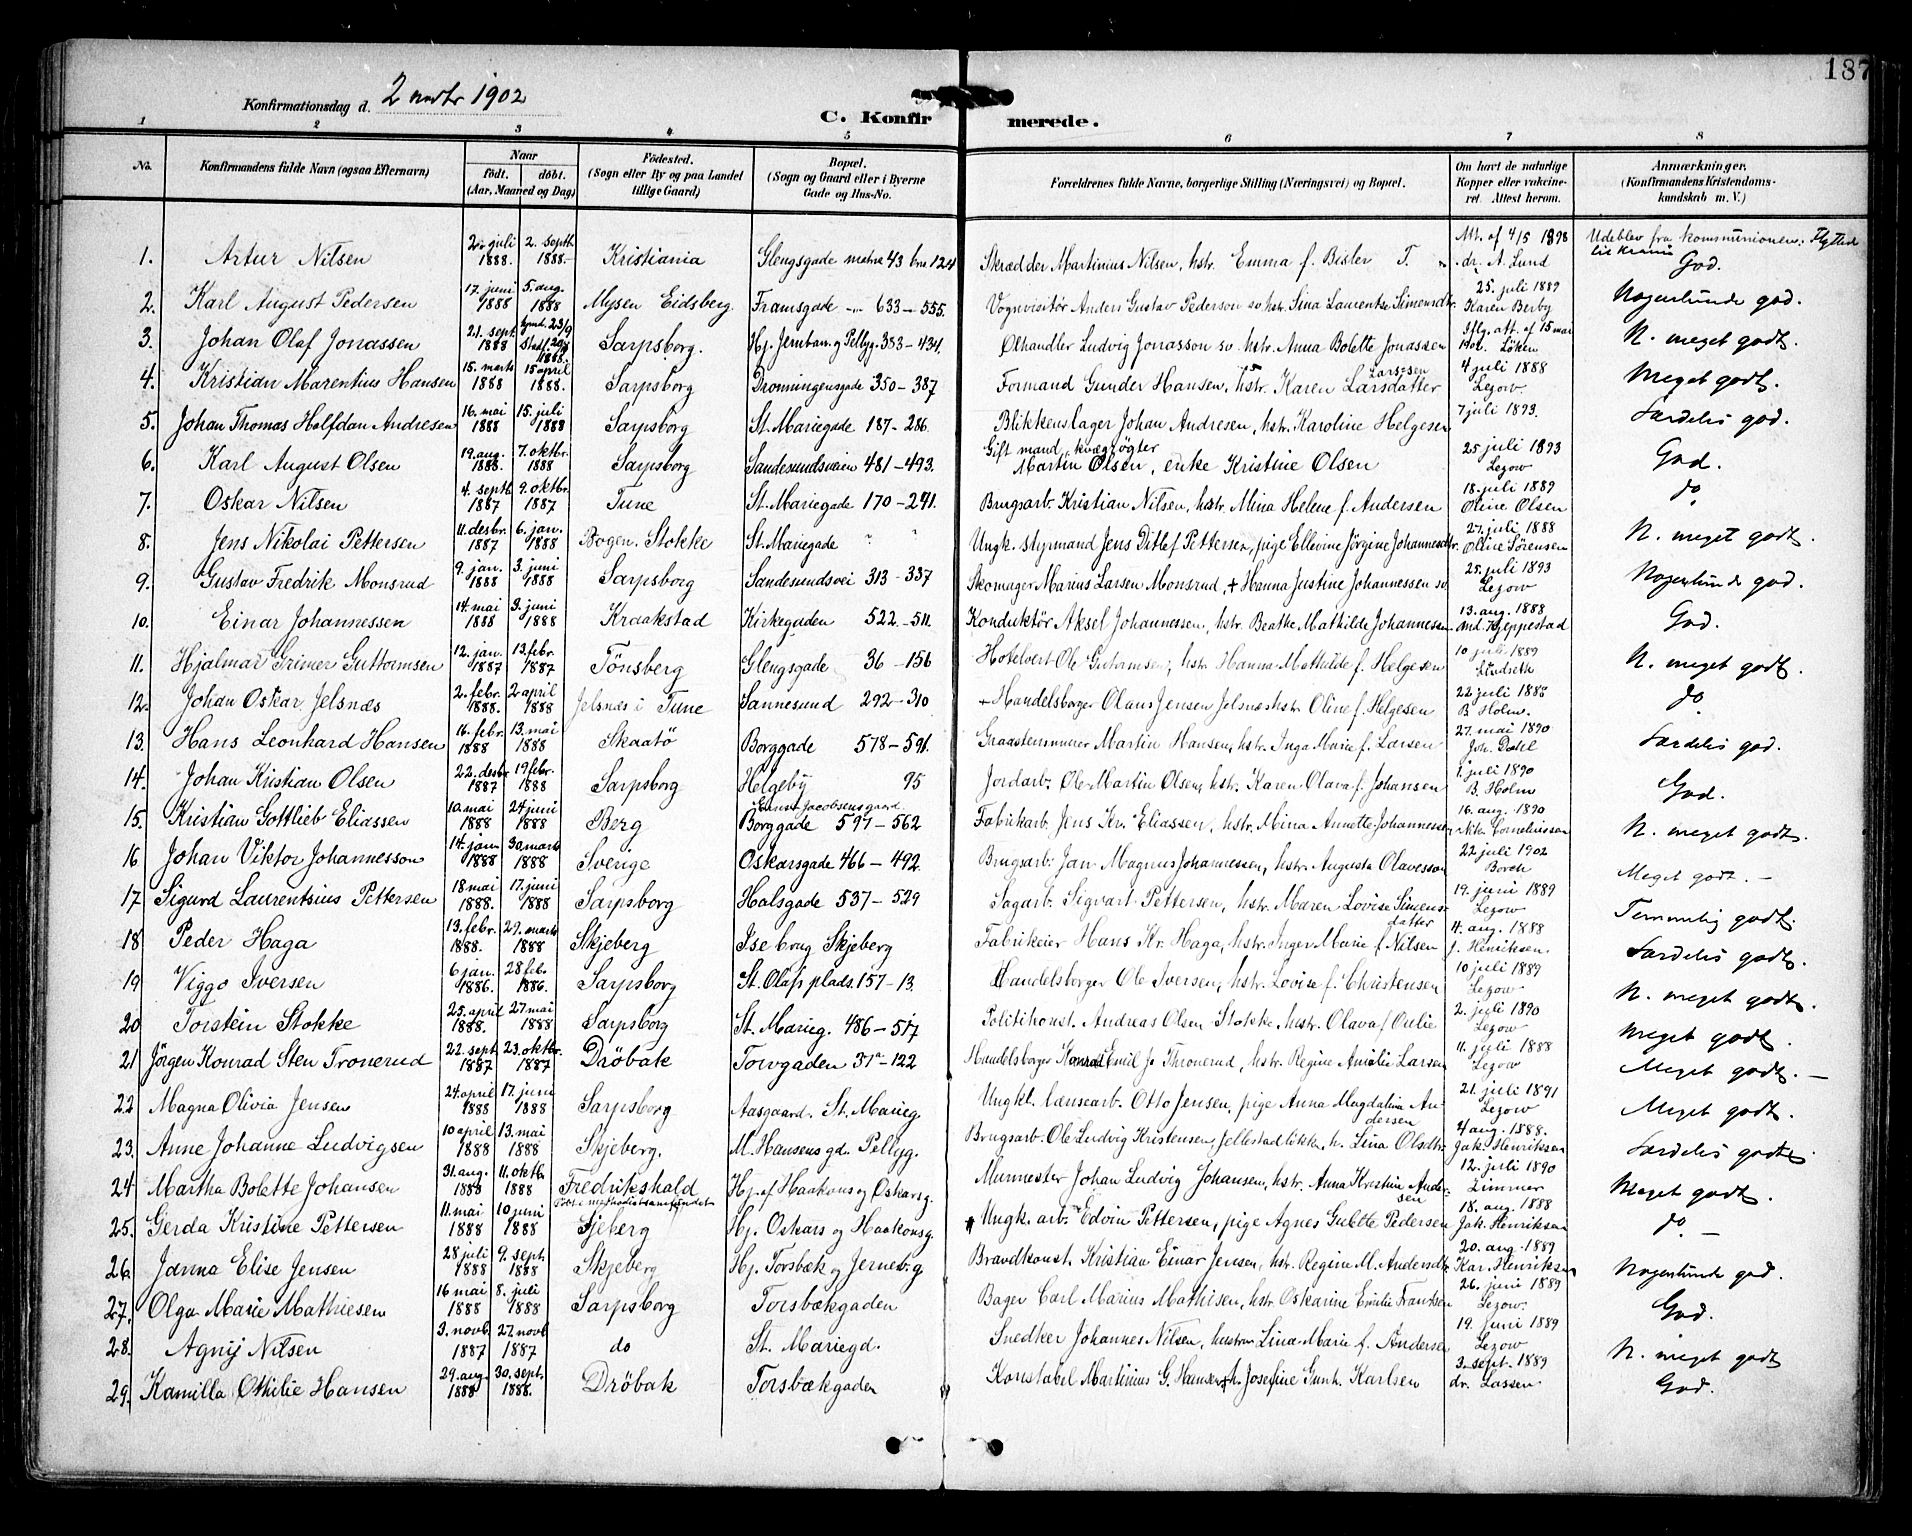 187
Konfirmationsdag d. 2 novbr 1902
C. Konfirmerede.
1 2 3 4 5 6 7 8
No. Konfirmandens fulde Navn (ogsaa Efternavn) Naar födt. döbt. (Aar, Maaned og Dag) Födested. (Sogn eller By og paa Landet tillige Gaard) Bopæl. (Sogn og Gaard eller i Byerne Gade og Hus-No. Forældrenes fulde Navne, borgerlige Stilling (Næringsvei) og Bopæl. Om havt de naturlige Kopper eller vakcineret. Attest herom. Anmærkninger. (Konfirmandens Kristendomskundskab m. V.)
1. Artur Nilsen juli 1888. 2. septb. 1888 Kristiania Glengsgade matr 43 Skrædder Martinius Nilsen, hstr. Emma f. Bisler Att. af 4/5 1898 dr. A. Lund Udeblev fra kommunionen: God.
2. Karl August Pedersen 17. juni 1888 5. aug. 1888 Mysen Eidsberg Framsgade 633 – 555. Vognvisitör Anders Gustav Pedersen so hstr. Sina Laurentse Simensdtr. 25. juli 1889 Karen Berby Nogenlunde god.
3. Johan Olaf Jonassen 21. sept. 1888 1888. Sarpsborg. Hj. Jernban. g Pellyg. 383 – 434. Ölhandler Ludvig Jonasson so hstr. Anna Bolette Jonassen Iflg. att. af 15 mai Löken N. meget godt.
4. Kristian Marentius Hansen 15. marts 1888 15 april 1888. Sarpsborg Dronningensgade 350 – 387 Formand Gunder Hansen, hstr. Karen Larsdatter Larsesen 4 juli 1888 Lezow. Meget godt.
5. Johan Thomas Halfdan Andresen 16. mai 1888 15. juli 1888 Sarpsborg St. Mariegade 187 – 286. Blikkenslager Johan Andresen, hstr. Karoline Helgesen 7 juli 1893. Særdeles god.
6. Karl August Olsen 19. aug. 1888. 7. oktbr. 1888 Sarpsborg Sandesundsveien 481 – 493. Gift mand, Martin Olsen, enke Kristine Olsen 25 juli 1893 Lezow God.
7. Oskar Nilsen 4. septb. 1887 9. oktbr. 1887 Tune St. Mariegade 170 – 241. Brugsarb. Kristian Nilsen, hstr. Mina Helene f. Andersen 18. juli 1889 Oline Olsen do
8. Jens Nikolai Pettersen 11. desbr. 1887 6. jan. 1888 Bogen. Stokke St. Mariegade " " Ungk. styrmand Jens Ditlef Pettersen, pige Ellevine Jörgine Johannesdtr. 27. juli 1888 Oline Sörensen N. meget godt.
9. Gustav Fredrik Monsrud 9. jan. 1888 3. juni 1888 Sarpsborg Sandesundsvei 313 – 337 Skomager Marius Larsen Monsrud, + Hanna Justine Johannessen so. 25. juli 1893 Lezow Nogenlunde god.
10. Einar Johannessen 14. mai 1888 3. juni 1888 Kraakstad Kirkegaden 522 – 511. Konduktör Aksel Johannessen, hstr. Beathe Mathilde Johannessen 13. aug. 1888 God.
11. Hjalmar Grimer Guttormsen 12. jan. 1887 13. febr. 1887 Tönsberg Glengsgade 36 – 156 Hotelvert Ole Gutormsen, hstr. Hanna Mathilde f. Helgesen 10 juli 1889 Lindseth N. meget godt.
12. Johan Oskar Jelsnæs 2. febr. 1888. 2 april 1888 Jelsnæs i Tune Sannesund 292 – 310 + Handelsborger Olaus Jensen Jelsnæs hstr. Oline f. Helgesen 22 juli 1888 B Holm. do
13. Hans Leonhard Hansen 16. febr. 1888 13. mai 1888 Skaatö Borggade 578 – 591. Graastensmurer Martin Hansen, hstr. Inga Marie f. Larsen 27. mai 1890 Joh. Særdeles god.
14. Johan Kristian Olsen 22. desbr 1887 19 febr. 1888 Sarpsborg Helgeby 95 Jordarb. Ole Martin Olsen, hstr. Karen Olava f. Johansen 1. juli 1890 B. Holm God.
15. Kristian Gottlieb Eliassen 10. mai 1888 24 juni 1888 Berg Jacobsens gaard. Borggade 597 – 562 Fabrikarb. Jens Kr. Eliassen, hstr. Mina Annette Johannessen 16. aug. 1890 Corneliussen N. meget godt.
16 Johan Viktor Johannesson 14. jan 1888 30 marts 1888 Sverige Oskarsgade 466 – 492. Brugsarb. Jan Magnus Johannessen, hstr. Augusta Olavesson 22 juli 1902 Borch Meget godt. –
17 Sigurd Laurentsius Pettersen 18 mai 1888. 17. juni 1888 Sarpsborg Halsgade 537 – 529 Sagarb. Sigvart Pettersen, hstr. Maren Lovise Simensdatter 19. juni 1889 Lezow Temmelig godt.
18 Peder Haga 13. febr. 1888. 29. marts 1888 Skjeberg Ise brug Skjeberg Fabrikeier Hans Kr. Haga, hstr. Inger Marie f. Nilsen 4. aug. 1888 J. Henriksen. Særdeles godt.
19 Viggo Iversen 6 jan. 1886. 28 febr. 1886. Sarpsborg St. Olafs plads. 157 – 13. Handelsborger Ole Iversen, hstr. Lovise f. Christensen 10 juli 1889 Lezow N. meget godt.
20 Torstein Stokke 25. april 1888. 27 mai 1888 Sarpsborg St. Marieg. 486 – 517 Politikonst. Andreas Olsen Stokke, hstr. Olava f Oulie 2. juli 1890 Lezow Meget godt.
21 Jörgen Konrad Sten Tronerud 22. sept 1887 23. oktbr. 1887 Dröbak Torvgaden 31ª – 122 Handelsborger Konrad Emil Thronerud, hstr. Regine Amalie Larsen 11. juli 1888 Lezow Meget godt. –
22 Magna Olivia Jensen 24. april 1888 17. juni 1888 Sarpsborg Aasgaard. St. Marieg. Ungkl. lænsearb. Otto Jensen, pige Anna Magdalina Andersen 21. juli 1891 Lezow Meget godt.
23. Anne Johanne Ludvigsen 10 april 1888 13. mai 1888 Skjeberg. M. Hansens gd. Pellyg. Brugsarb. Ole Ludvig Kristensen, h. Lina Olsdtr. 4 aug. 1888. Jak. Henriksen Særdeles godt.
24 Martha Bolette Johansen 31. aug. 1888 11. oktb. 1888 Fredrikshald Hj. af Haakons og Oskarsg. Murmester Johan Ludvig Johansen, hstr. Anna Kristine Andersen 12. juli 1890 Zimmer Meget godt.
25. Gerda Kristine Pettersen 11. mai 1888 10 juni 1888 Sjeberg Hj. Oskars og Haakonsg. Ungk. arb. Edvin Pettersen, pige Agnes Gulette Pedersen 18. aug. 1888 Jak. Henriksen do –
26. Janna Elise Jensen 28 juli 1888 9. sept. 1888 Skjeberg Hj. Torsbæk og Jernev. g Brandkonst. Kristian Einar Jensen, hstr. Regine M. Andersdtr. 20. aug. 1889 Kar. Henriksen Nogenlunde god.
27. Olga Marie Mathiesen 16 mai 1888 8. juli 1888 Sarpsborg Torsbækgaden Bager Carl Marius Mathisen, hstr. Oskarine Emilie Frantsen 26. juni 1889 Lezow. God.
28. Agnij Nilsen 3. novb. 1887 27. novb. 1887 do St. Mariegd. Snedker Johannes Nilsen, hustru Lina Marie f. Andersen 19. juni 1889 Lezow N. meget godt
29. Kamilla Othilie Hansen 29. aug. 1888 30. sept. 1888. Dröbak Torsbækgaden Konstabel Martinius G. Hansen h. Josefine Gunh. Karlsen 3. sept. 1889 dr. Lassen. God.